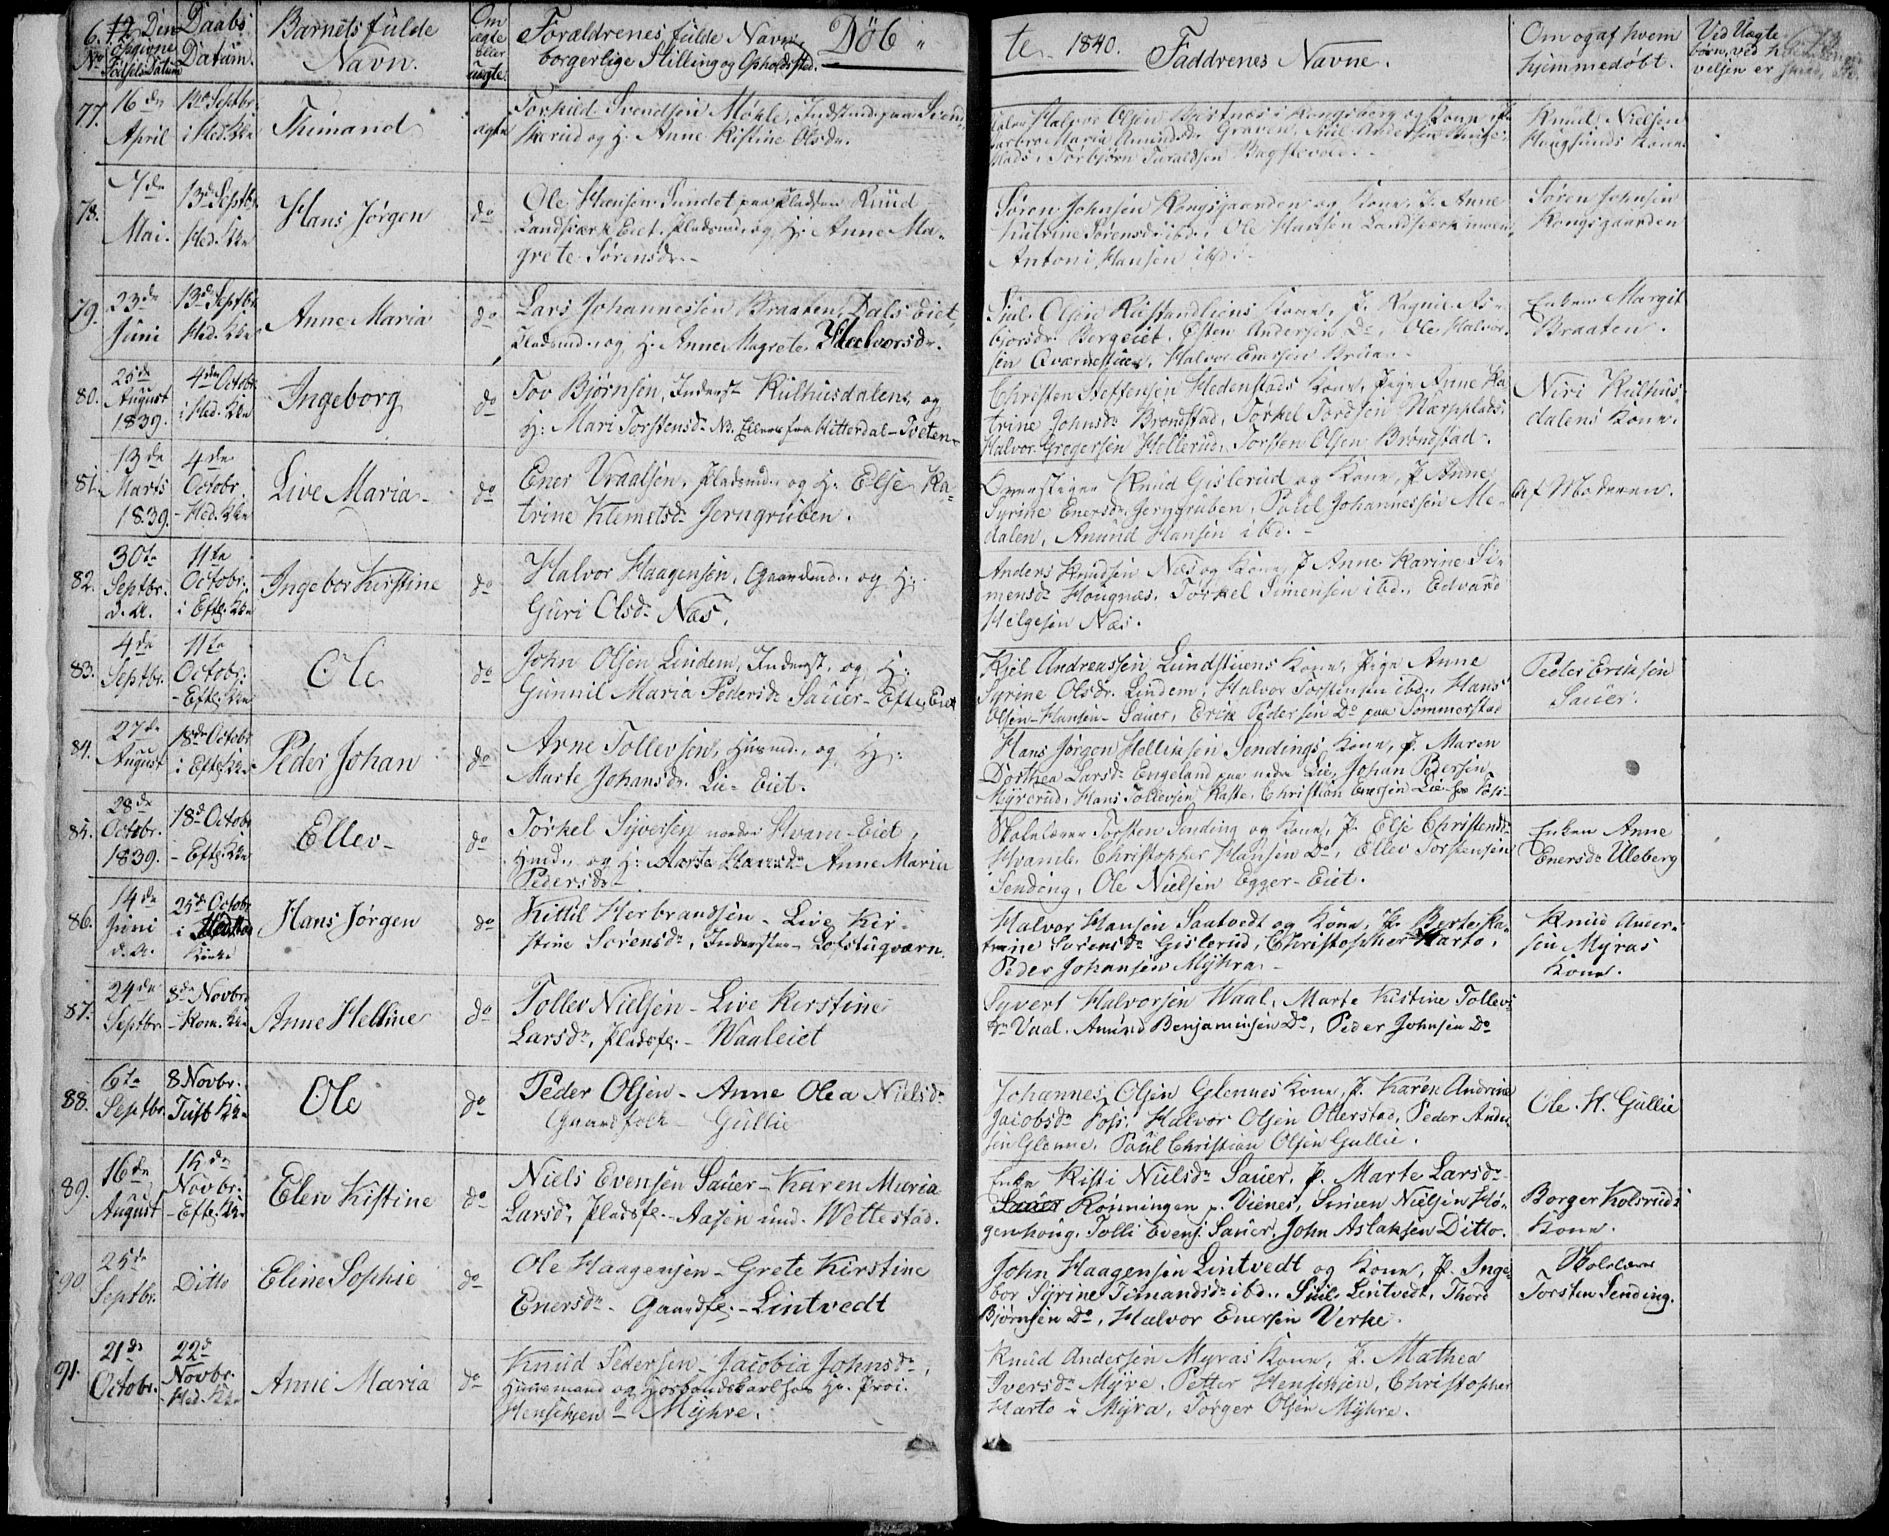 6. 12 Den Daabs Barnets fulde Om Forældrenes fulde Navn, Døb
No opgivne Datum. Navn. ægte eller uægte. borgerlige Stilling og Opholdssted.
Fødsels Datum
te 1840. Faddrenes Navne. Om og af hvem hjemmedøbt. Ved Uægte
børn, ved
velsen er
77. 16de April 13de Septbr. i Hed. Kke Thimand ægte
Torkild Svendsen Mohle, Indst.
og H: Anne Kistine Olsdr.
Halvor Olsen i Kongsberg og Kone, P.
Maria Amundsdr. Graven, Andersen
Torbjørn Taraldsen
Knud Nielsen
Haugsunds Kone
78. 7de Mai. 13de Septbr. Hed. Kke Hans Jørgen do
Ole Hansen Sundet paa Pladsen Ruud
Landsværk Eiet, Pladsmd. og H: Anne Ma-
grete Sørensdr.
Søren Johnsen Kongsgaarden og Kone, P. Anne
Katrine Sørensdr. ibd., Ole Hansen Landsværkmoen,
Antoni Hansen ibd.
Søren Johnsen
Kongsgaarden
79. 23de Juni 13de Septbr. Hed. Kke Anne Maria do
Lars Johannessen Braaten, Dals Eiet,
Pladsmd. og H: Anne Magrete Halvorsdr.
Siul Olsen Kone, P. Ragnil As-
bjørsdr. Bergeiet, Østen Andersen Do, Ole Halvor-
sen Qværnestuen, Halvor Enersen
Enken Margit
Braaten.
80. 25de August 1839. 4de Octobr. i Hed. Kke Ingeborg do
Tov Bjørnsen, Inderst Kulhusdalen, og
H: Mari Torstensdr. NB. Ellers fra Hitterdal-
Christen Steffensen Hedenstads Kone, Pige Anne Ka-
trine Johnsdr. Brønstad, Torkel Tordsen
Halvor Gregersen Hollerud, Torsten Olsen Brøndstad.
Niri Kulhus-
dalens Kone.
81. 13de Marts 1839. 4de Octobr. - Hed. Kke Live Maria - do
Ener Vraalsen, Pladsmd. og H: Else Ka-
trine Klemetsdr. Jerngruben.
Overstiger Knud Gislerud og Kone, P. Anne
Syrine Enersdr. Jerngruben, Paul Johannessen Me-
dalen, Amund Hansen ibd. -
Af Moderen.
82. 30te Septbr. d. A. 11te Octobr. i Eftl. Kke Ingebor Kirstine do
Halvor Haagensen, Gaardmd. og H:
Guri Olsdr. Næs.
Anders Knudsen Næs og Kone, P. Anne Karine Si-
mensdr. Hougnæs, Torkel Simensen ibd., Edvard
Helgesen Næs.
83. 4de Septbr. 11te Octobr. - Eftl. Kke Ole do
John Olsen Lindem, Inderst, og H:
Gunnil Maria Pedersdr. Sauer - Eftl. Eiet
Kjel Andreassen Lundstuens Kone, Pige Anne
Syrine Olsdr. Lindem, Halvor Torstensen ibd., Hans
Olsen - Hansen - Sauer, Erik Pedersen Do paa Sommerstad
Peder Eriksen
Sauer.
84. 27de August 18de Octobr. i Eftl. Kke Peder Johan do
Arne Tollevsen, Husmd., og H:
Marte Johansdr. Lie - Eiet.
Hans Jørgen Helliksen Sendings Kone, P. Maren
Dorthea Larsdr. Engeland paa nedre Lie, Johan Pedersen
Myrerud, Hans Tollevsen Kaste, Christian Enersen Lie
85. 28de Octobr. 1839. 18de Octobr. - Eftl. Kke Ellev - do
Torkel Syversen nordre Hvam - Eiet,
Hmd. og H: Marte Hansdr. Anne Maria
Pedersdr.
Skolelærer Torsten Sending og Kone, P. Else Christensdr.
Hvamb, Christopher Hansen Do, Ellev Torstensen
Sending, Ole Nielsen Egger - Eiet.
Enken Anne
Enersdr. Uleberg
86. 14de Juni d. A. 25de Octobr. i Kirke Hans Jørgen do
Kittil Herbrandsen - Live Kir-
stine Sørensdr., Inderster - Lofstuqværn.
Halvor Hansen Saatvedt og Kone, P. Berte Ka-
trine Sørensdr. Gislerud, Christopher Harto,
Peder Johansen Myhra -
Knud Ander-
sen Myras
Kone.
87. 24de Septbr. 8de Novbr. - Kom. Kke Anne Helline do
Tollev Nielsen - Live Kerstine
Larsdr., Pladsfl. - Waaleiet
Syvert Halvorsen Waal, Marte Kistine Tollevs-
dr. Vaal, Amund Benjaminsen Do, Peder Johnsen Do
88. 6te Septbr. 8 Novbr. Tuft Kke Ole do
Peder Olsen - Anne Olea Nielsdr.
Gaardfolk - Gullie
Johannes Olsen Glennes Kone, P. Karen Andrine
Jacobsdr. Foss, Halvor Olsen Olterstad, Peder Ander-
sen Glenne, Paul Christian Olsen Gullie.
Ole. H. Gullie
89. 16de August 15de Novbr. - Eftl. Kke Elen Kistine do
Niels Evensen Sauer - Karen Maria
Larsdr. Pladsfl. - Aasen und. Wettestad.
Enke Kisti Nielsdr. Sauer, P. Marte Larsdr.
Sauer Rønningen p. Vienes, Simen Nielsen Hø-
genhoug, Tolli Evens. Sauer, John Aslaksen Ditto.
Borger Kolsruds
Kone.
90. 25de Septbr. Ditto Eline Sophie do
Ole Haagensen - Grete Kirstine
Enersdr. - Gaardfl. - Lintvedt
John Haagensen Lintvedt og Kone, P. Inge-
bor Syrine Timandsdr. ibd., Siul Lintvedt, Thore
Bjørnsen Do, Halvor Enersen Verke.
Skolelærer
Torsten Sending.
91. 21de Octobr. 22de Novbr. Hed. Kke Anne Maria do
Knud Pedersen - Jacobia Johnsdr.
Huusmand og Huusbondskarl hos Hr. Proc.
Henschien - Myhre.
Knud Andersen Myras Kone, P. Mathea
Iversdr. Myre, Petter Henschien, Christopher
Harto i Myra, Torger Olsen Myhre.